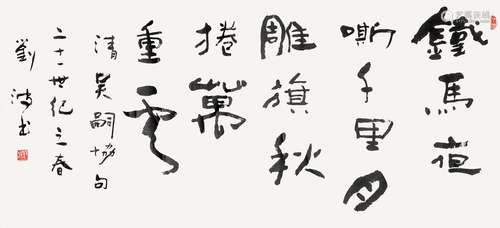 鐵馬夜
嘶千里月
雕旗秋
捲萬
重雲
清吳嗣協句
二十一世紀之春
劉濤書